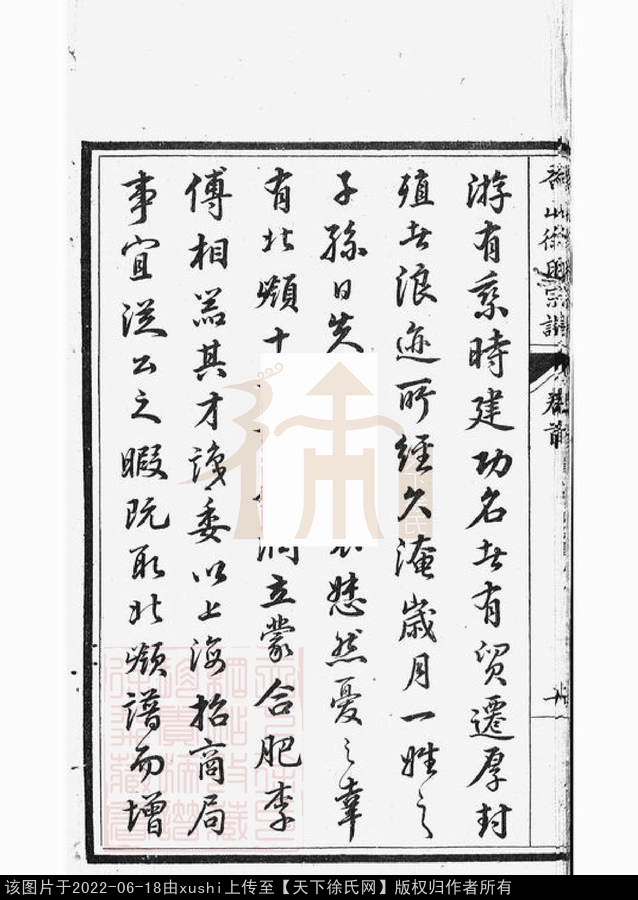 游有乘時建功名者有貿遷厚封
殖者浪迹所經久淹歲月一姓之
子孫日失愻然憂之幸
有北嶺十澗立蒙合肥李
傅相器其才諉委以上海招商局
事宜從公之暇既取北嶺譜而增
香山徐氏宗譜
卷首
该图片于2022-06-18由xushi上传至【天下徐氏网】版权归作者所有